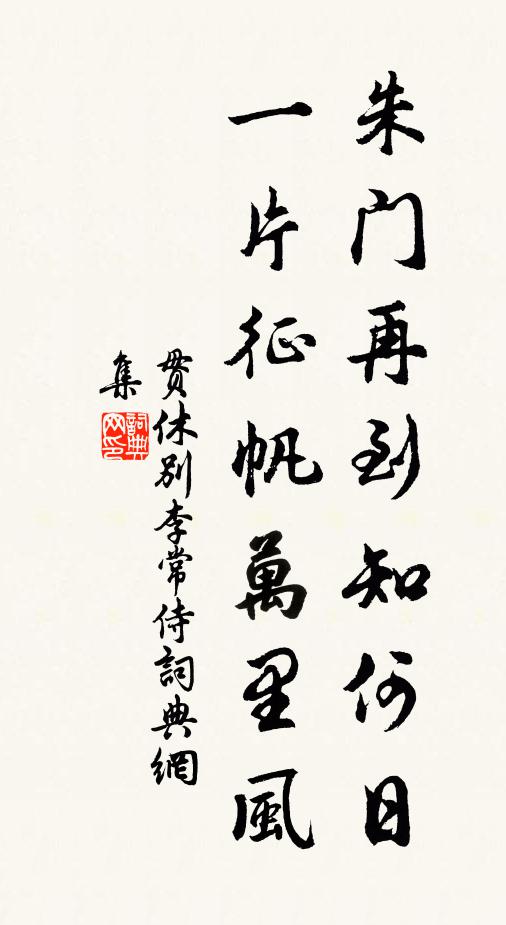 朱门再到知何日
一片征帆萬里風
貫休别李常侍詞典網
集
詞典网印